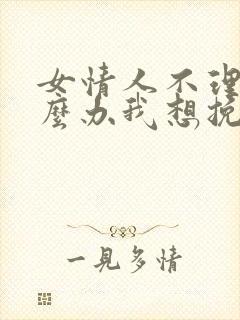 女情人不理
麼办我想挽
一見多情